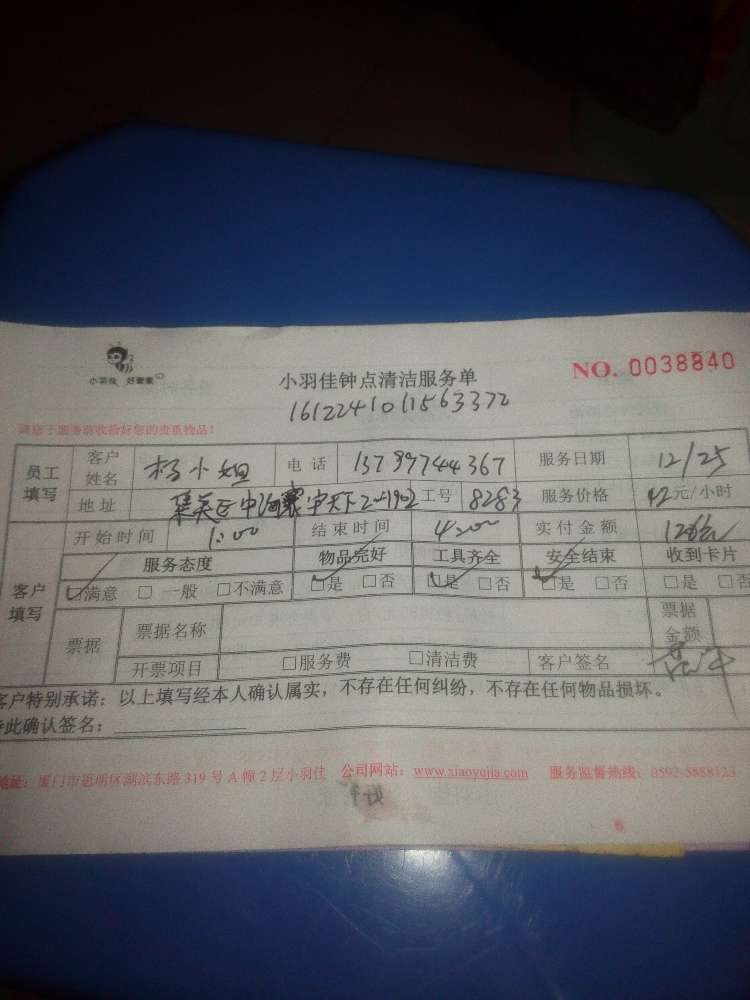 小羽佳 好管家
小羽佳钟点清洁服务单
NO. 0038840
1612241011563372
请您于服务前收捡好您的贵重物品!
员工填写 客户姓名 杨小姐 电话 13799744367 服务日期 12/25
地址 集美区中海 宇天下2-1902 工号 8283 服务价格 42元/小时
客户填写 开始时间 1:00 结束时间 4:00 实付金额 126元
服务态度 物品完好 工具齐全 安全结束 收到卡片
☑满意 □ 一般 □不满意 ☑是 □否 ☑是 □否 ☑是 □否 □是 □否
票据 票据名称 票据金额
开票项目 □服务费 □清洁费 客户签名
客户特别承诺:以上填写经本人确认属实,不存在任何纠纷,不存在任何物品损坏。
特此确认签名:
地址:厦门市思明区湖滨东路319号A幢2层小羽佳 公司网站:www.xiaoyujia.com 服务监督热线:0592-5888123